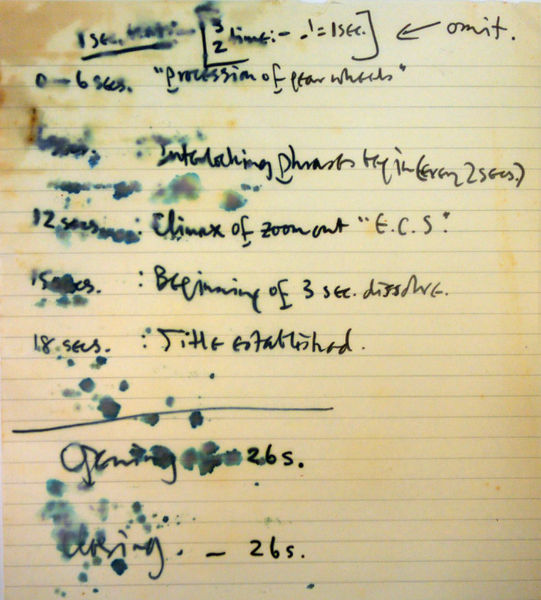 1 sec. [3/2 time: - ! = 1 sec.] ← omit.
0 – 6 secs. "Procession of gear wheels"
: Interlocking phrases begin (every 2 secs.)
12 secs. : Climax of zoom out "E.C.S".
15 secs. : Beginning of 3 sec. dissolve.
18 secs. : Title established.
Opening – 26 s.
Closing. – 26 s.